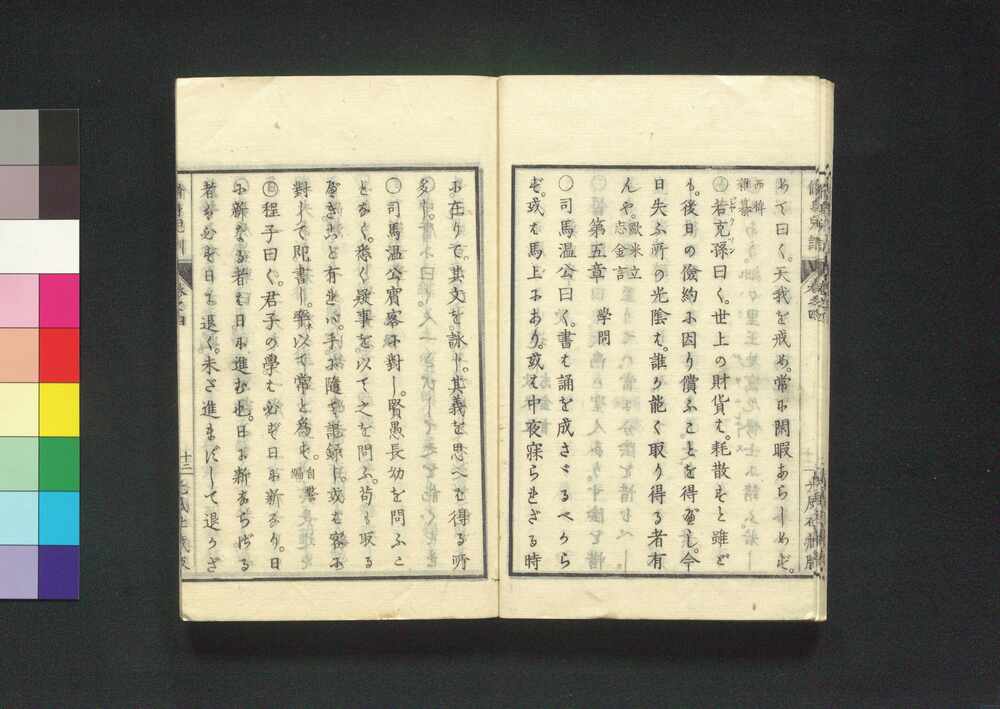 めて曰く。天我を戒め。常に閑暇あらしめず。
西稗
雑纂
若克孫曰く。世上の財貨は。耗散すと雖ど
も。後日の倹約に因り償ふことを得べし。今
日失ふ所の光陰は。誰か能く取り得る者有
んや。
歐米立
志金言
第五章 學問
○司馬温公曰く。書は誦を成さゞるべから
ず。或は馬上にあり。或は中夜寐られざる時
に在りて。其文を詠じ。其義を思へは得る所
多し。
○司馬温公賓客に對し。賢愚長幼を問ふこ
となく。悉く疑事を以て之を問ふ。苟も取る
べきこと有れば。手に隨て記録し。或は客に
對して即書し。率以て常と為す。
自警
編
程子曰く。君子の學は必ず日に新なり。日
に新なる者は日に進む也。日に新ならざる
者は必ず日に退く。未だ進まずして退かざ
卷之四
十二